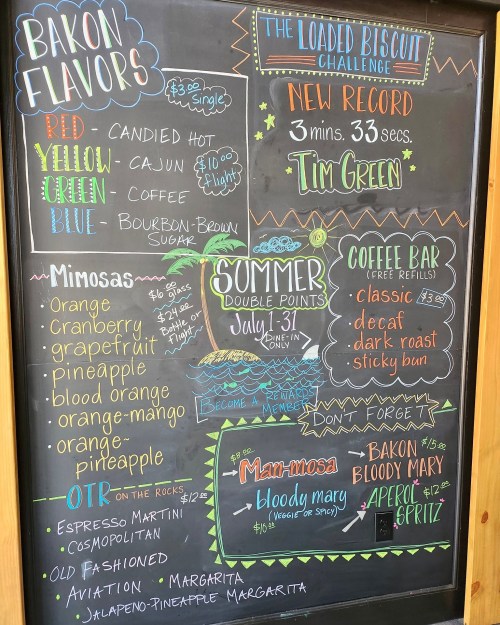 BAKON
FLAVORS
$3.00
Single
RED - CANDIED HOT
YELLOW - CAJUN
GREEN - COFFEE
BLUE - BOURBON-BROWN
SUGAR
$10.00
flight
THE LOADED BISCUIT
CHALLENGE
NEW RECORD
3 mins. 33 secs.
TIM GREEN
Mimosas
$6.00 glass
$24.00
Bottle or
Flight
• Orange
• Cranberry
• grapefruit
• pineapple
• blood orange
• orange-mango
• orange-
pineapple
SUMMER
DOUBLE POINTS
July 1-31
DINE-IN
ONLY
BECOME A REWARDS
MEMBER
COFFEE BAR
(FREE REFILLS)
• classic $3.00
• decaf
• dark roast
• sticky bun
DON'T FORGET
$8.00
Man-mosa
bloody mary
(VEGGIE OR SPICY)
BAKON $15.00
BLOODY MARY
APEROL $12.00
SPRITZ
OTR ON THE ROCKS $12.00
• ESPRESSO MARTINI
• COSMOPOLITAN
• OLD FASHIONED
• AVIATION • MARGARITA
• JALAPENO-PINEAPPLE MARGARITA